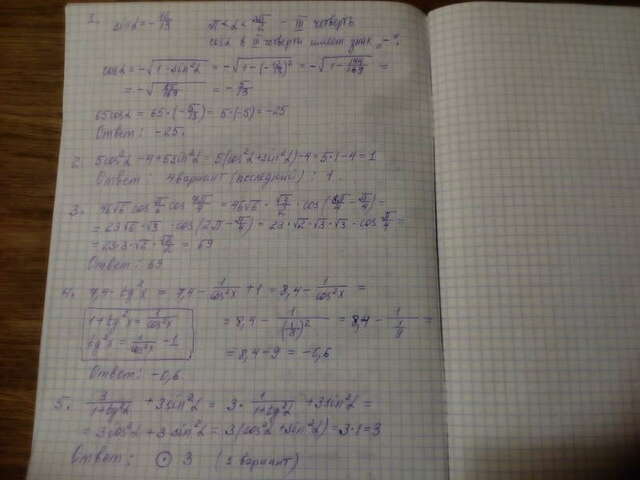 1. sin α = -12/13 π < α < 3π/2 - III четверть
cos α в III четверти имеет знак „-".
cos α = -√(1-sin²α) = -√(1-(-12/13)²) = -√(1-144/169) =
= -√(25/169) = -5/13
65 cos α = 65·(-5/13) = 5·(-5) = -25
Ответ: -25.
2. 5cos²α - 4 + 5sin²α = 5(cos²α + sin²α) - 4 = 5·1 - 4 = 1
Ответ: 4 вариант (последний): 1.
3. 46√6 cos π/6 cos 7π/4 = 46√6 · √3/2 · cos(8π/4 - π/4) =
= 23√6 · √3 · cos(2π - π/4) = 23 · √2 · √3 · √3 · cos π/4 =
= 23·3·√2 · √2/2 = 69
Ответ: 69
4. 7,4 - tg²x = 7,4 - 1/cos²x + 1 = 8,4 - 1/cos²x =
1 + tg²x = 1/cos²x = 8,4 - 1/(1/3)² = 8,4 - 1/(1/9) =
tg²x = 1/cos²x - 1 = 8,4 - 9 = -0,6
Ответ: -0,6.
5. 3/(1+tg²α) + 3sin²α = 3 · 1/(1+tg²α) + 3sin²α =
= 3cos²α + 3sin²α = 3(cos²α + sin²α) = 3·1 = 3
Ответ: 3 (1 вариант)